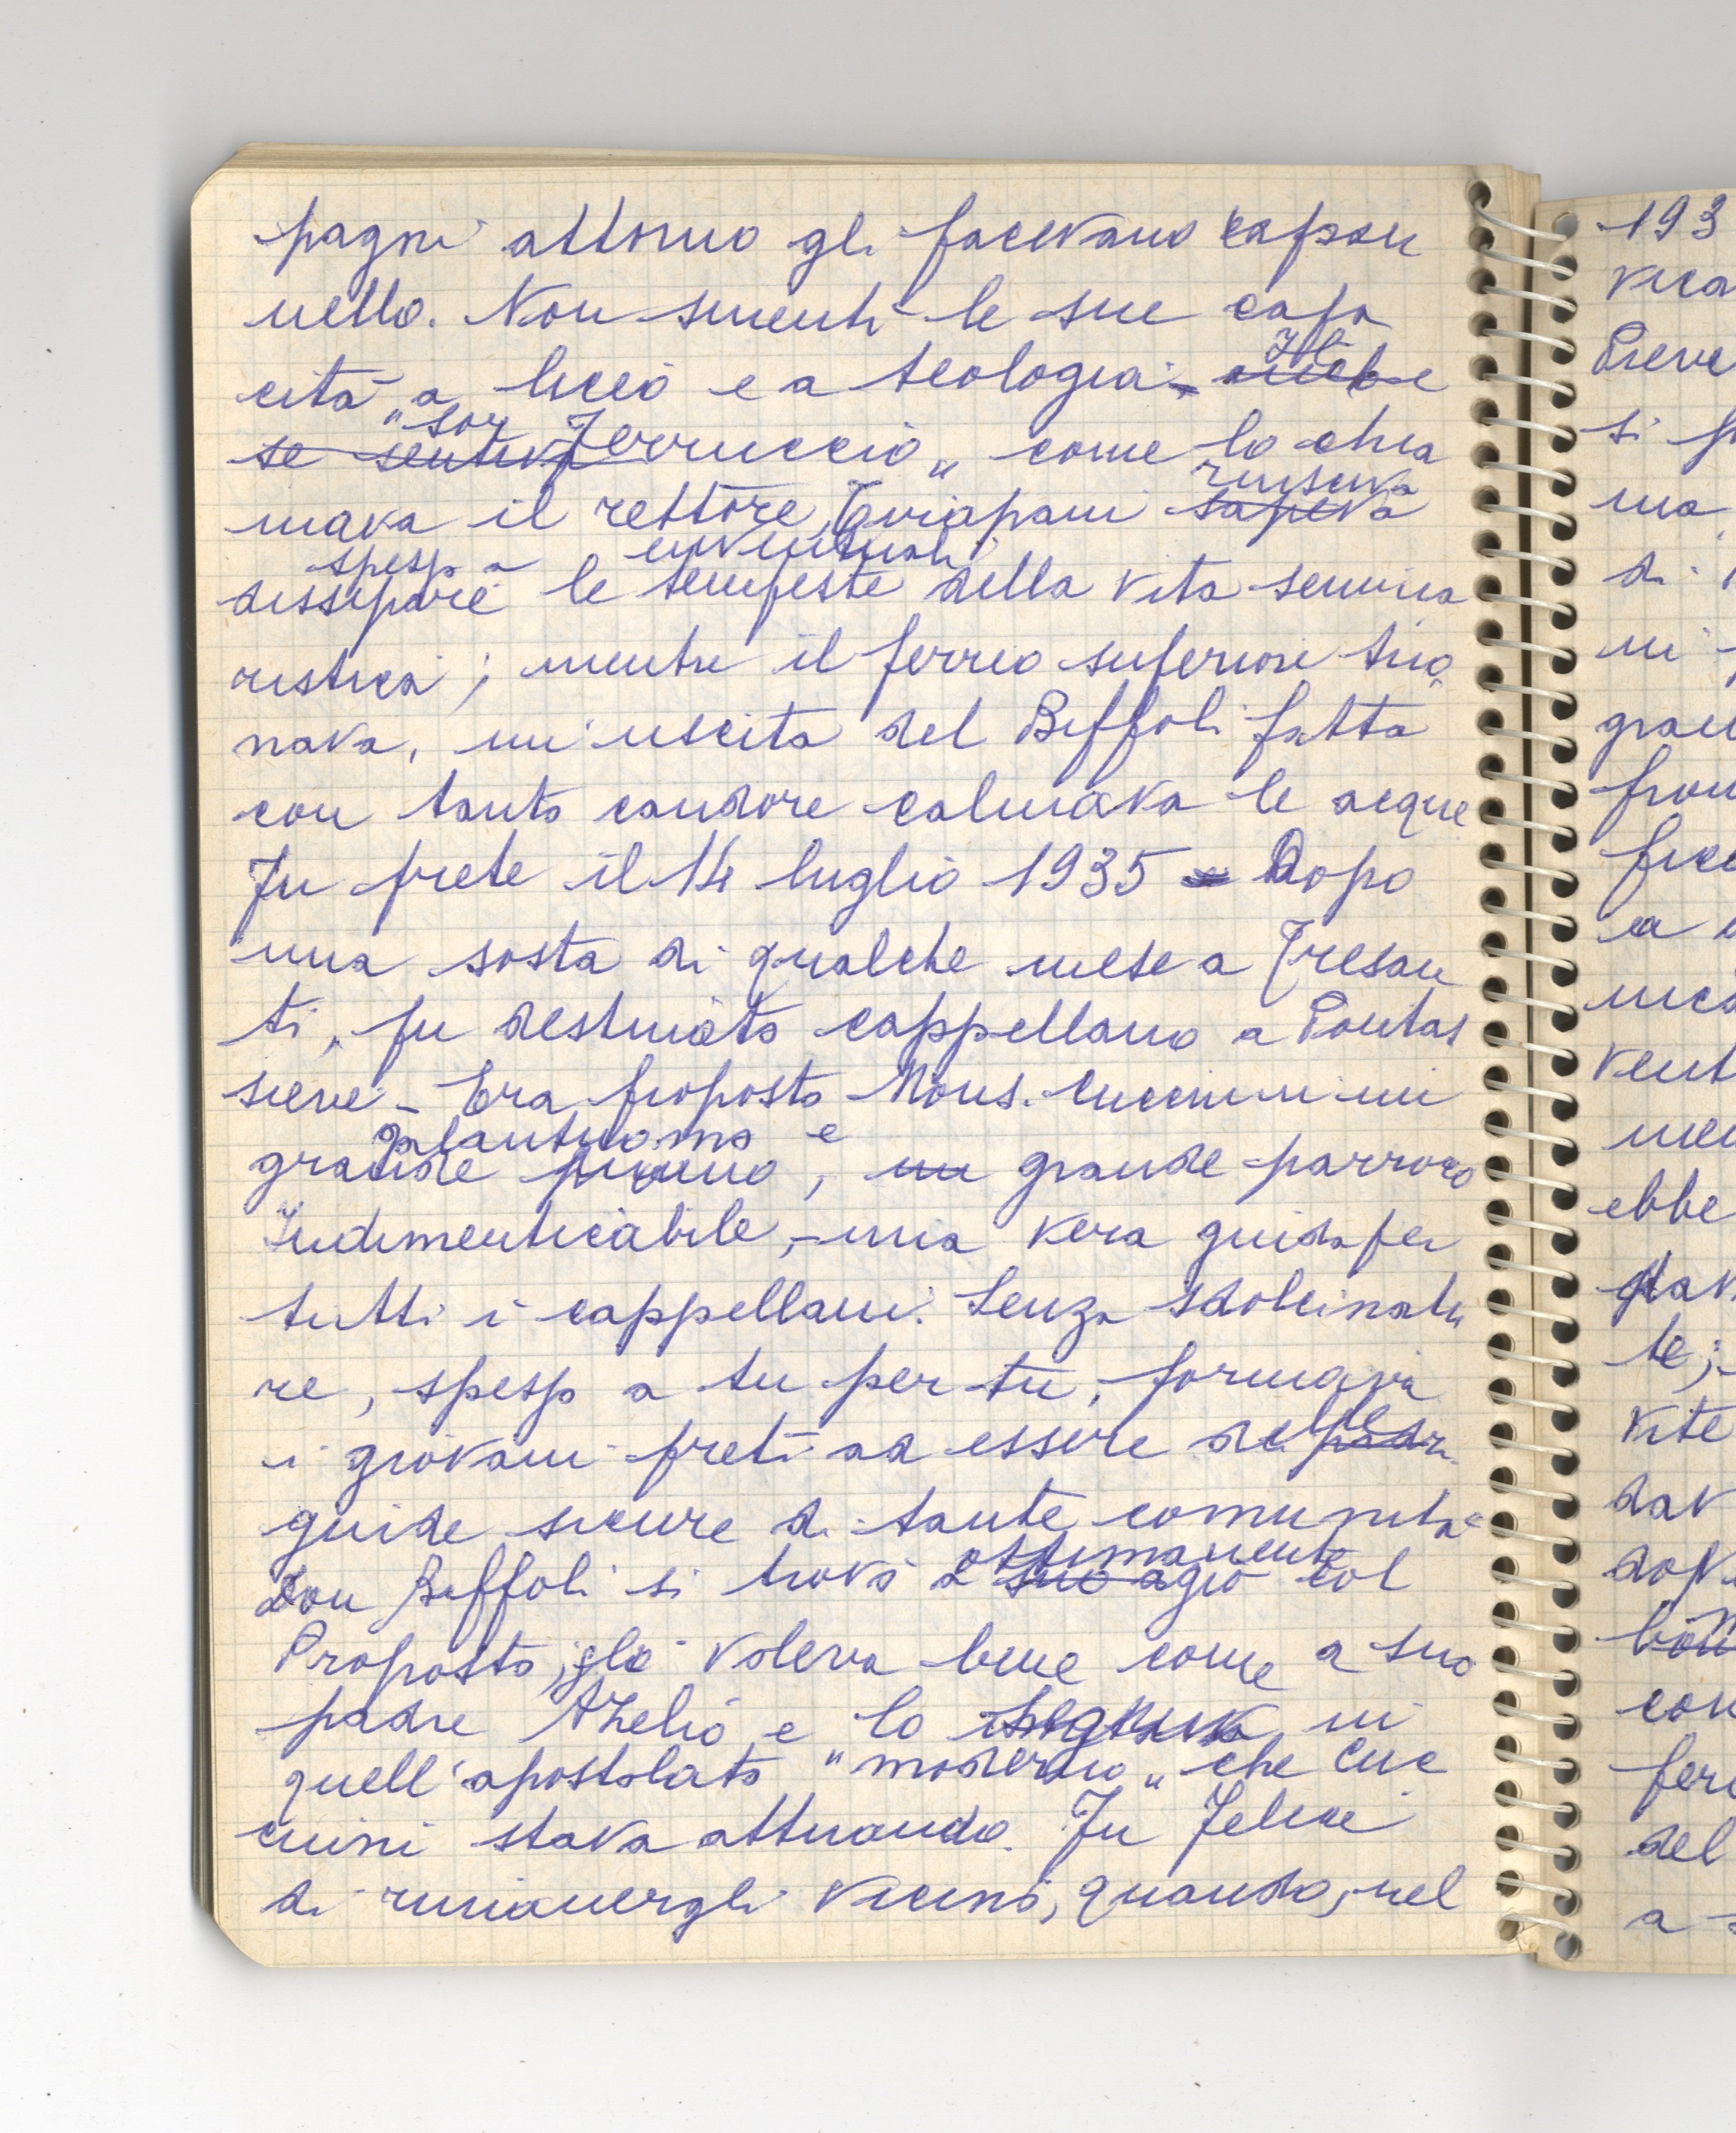 pagni attorno gli facevano capan
nello. Non smentì le sue capa
cità a liceo e a teologia. Il
"sor Ferruccio" come lo chia
mava il rettore, Tvriapani riusciva
spesso a
dissipare le eventuali tempeste della vita semina
ristica; mentre il ferreo superiore tuo
nava, un'uscita del Biffoli fatta
con tanto candore calmava le acque
Fu prete il 14 luglio 1935 - Dopo
una sosta di qualche mese a Tresan
ti, fu destinato cappellano a Pontas
sieve - Era proposto Mons. Cuccuini
galantuomo e
grande, grande parroco
Indimenticabile, una vera guida per
tutti i cappellani. Senza sdolcinatu
re, spesso a tu per tu, formava
i giovani preti ad essere delle
guide sicure di tante comunità
ottimamente
Don Biffoli si trovò col
Proposto, gli voleva bene come a suo
padre Athelio e lo seguiva in
quell'apostolato "moderno" che Cuc
cuini stava attuando. Fu felice
di rimanergli vicino, quando, nel
193
Pieve
si p
ma
di
ni
grau
a
ebbe
te;
vite
dav
con
del
a s